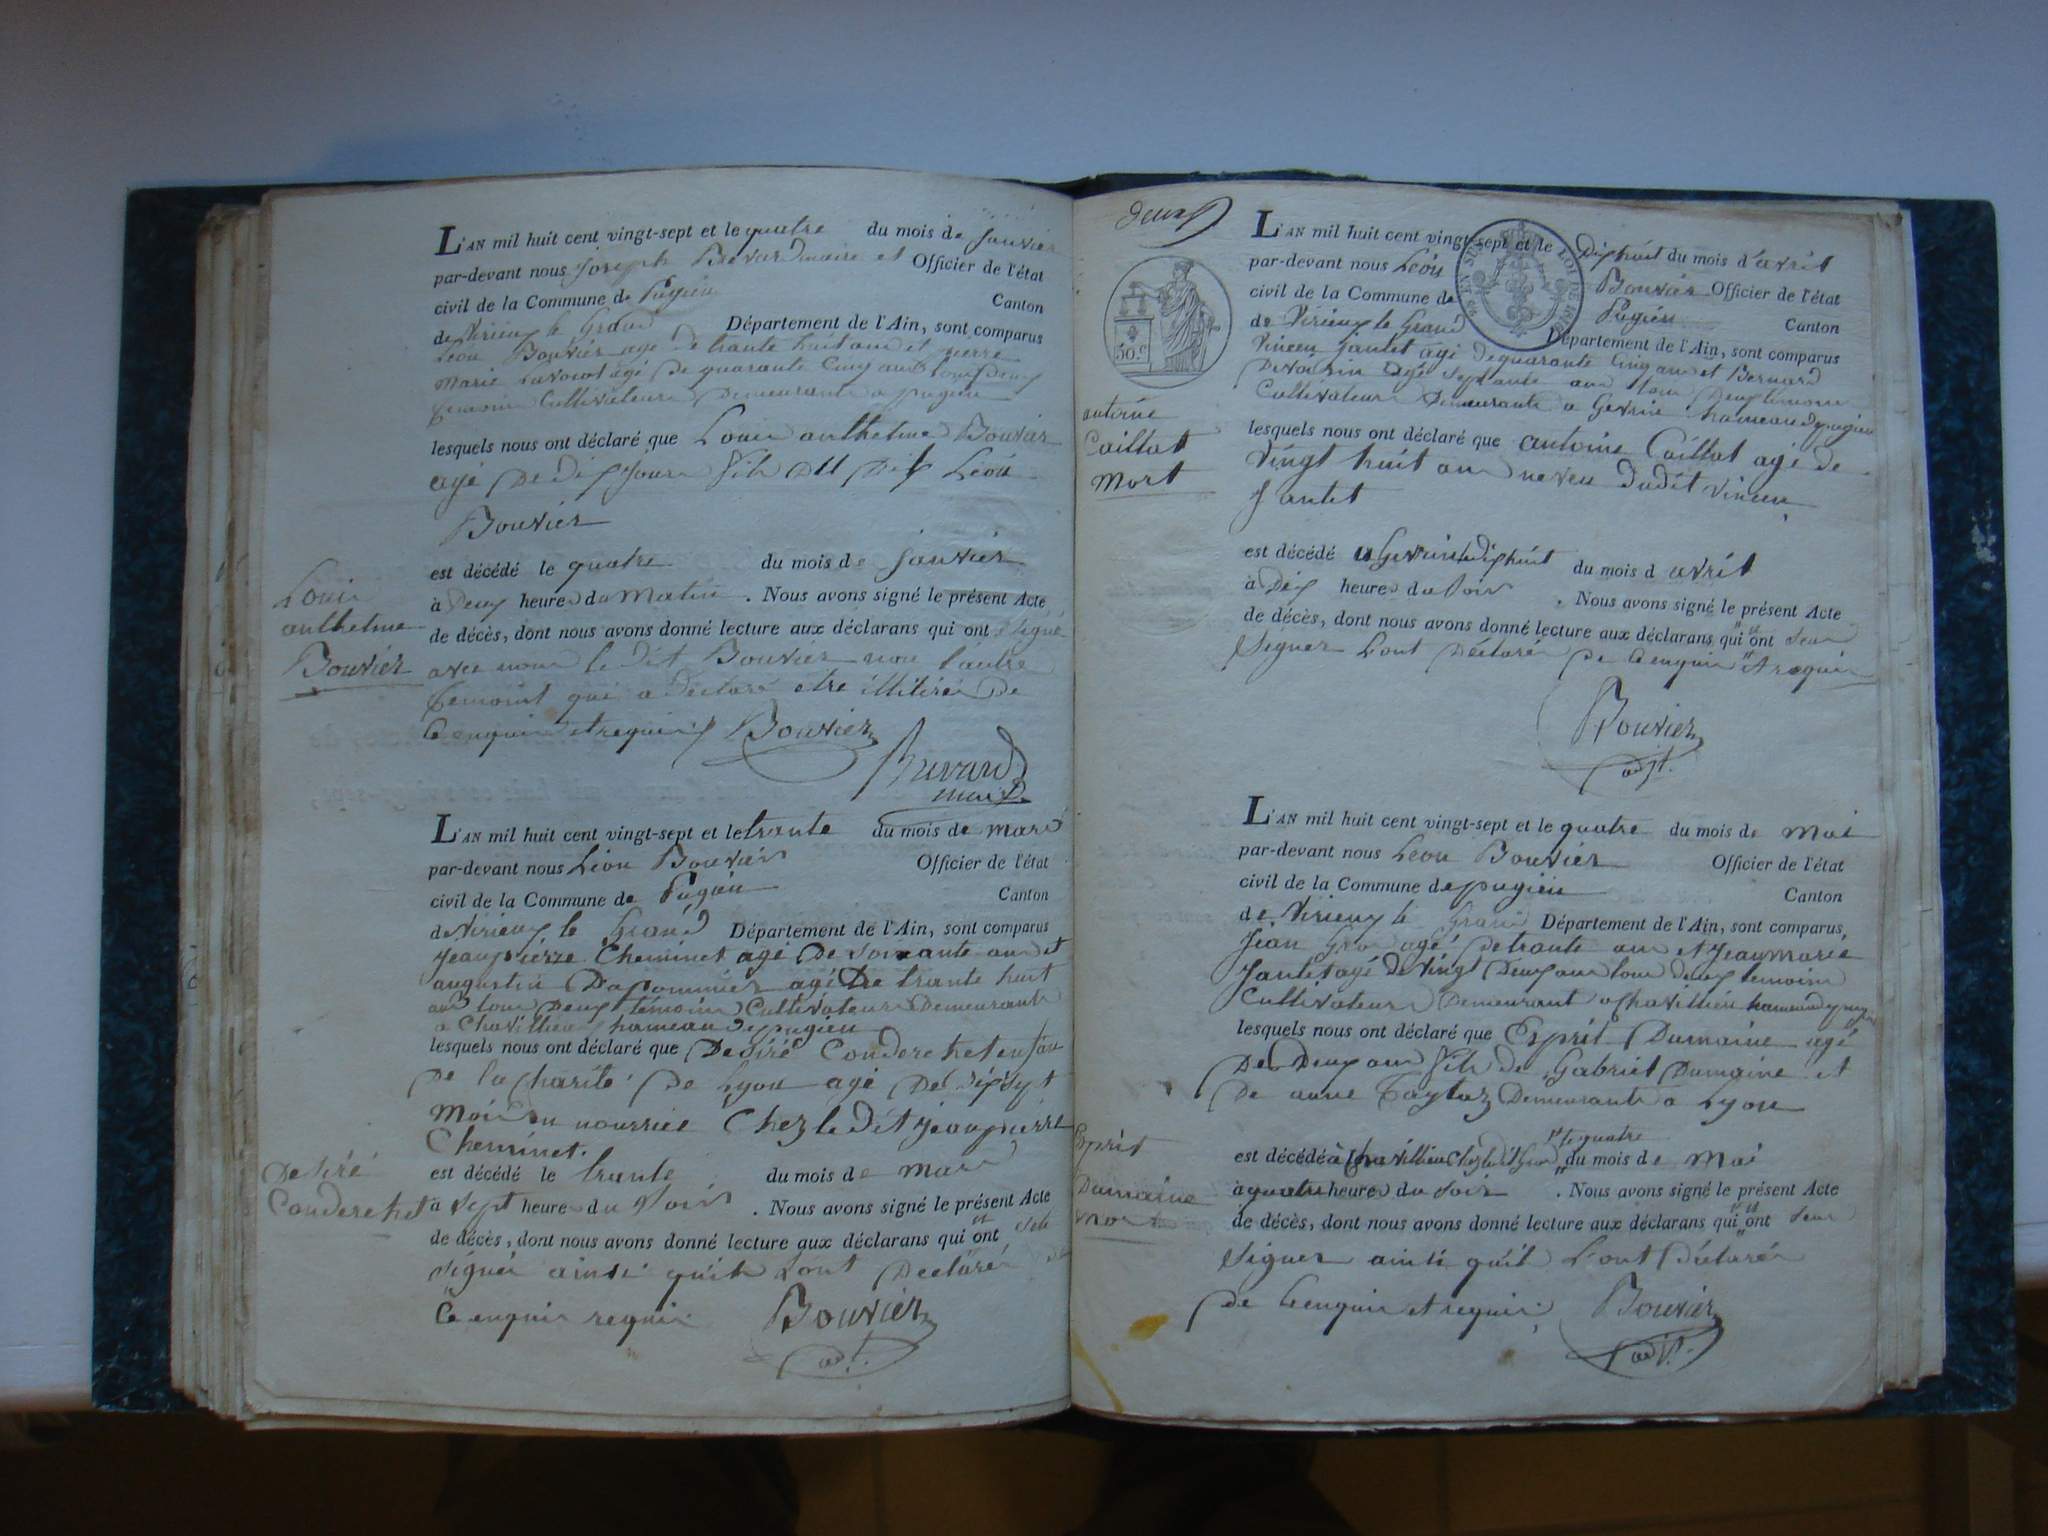 L'AN mil huit cent vingt-sept et le quatre du mois de janvier
par-devant nous joseph Brevard maire et Officier de l'état
civil de la Commune de Pugieu Canton
de Virieux le Grand Département de l'Ain, sont comparus
Léon Bouvier agé de trante huit ans et pierre
marie Lavocat agé de quarante Cinq ans tous deux
temoins Cultivateurs Demeurants a pugieu
lesquels nous ont déclaré que Louis anthelme Bouvier
agé De dix jours fils du dit Léon
Bouvier
est décédé le quatre du mois de janvier
à Deux heures du Matin . Nous avons signé le présent Acte
de décès, dont nous avons donné lecture aux déclarans qui ont signé
avec nous le dit Bouvier non l'autre
temoint qui a déclaré etre illitiré De
Ce enquis et requis Bouvier
Brevard
maire
Louis
anthelme
Bouvier
L'AN mil huit cent vingt-sept et le trante du mois de mars
par-devant nous Léon Bouvier Officier de l'état
civil de la Commune de Pugieu Canton
de Virieux le Grand Département de l'Ain, sont comparus
jeanpierre Cheminet agé De soixante ans et
augustin Dapommier agé De trante huit
ans tous Deux témoins Cultivateurs Demeurants
a Chavillieu hameau de pugieu
lesquels nous ont déclaré que Desiré Conderchet enfan
De la Charité De Lyon agé De dix sept
Mois en nourrice Chez le dit jeanpierre
Cheminet.
est décédé le trante du mois de mars
à sept heures du Soir . Nous avons signé le présent Acte
de décès, dont nous avons donné lecture aux déclarans qui ont
signer ainsi qu'ils Lont Déclaré
Ce enquis requis Bouvier
adjt.
Desiré
Conderchet
deux
L'AN mil huit cent vingt-sept et le Dixhuit du mois d'avril
par-devant nous Léon Bouvier Officier de l'état
civil de la Commune de Pugieu Canton
de Virieux le Grand Département de l'Ain, sont comparus
Vincen jantet agé de quarante Cinq ans et Bernard
agé Septante ans tous Deux temoins
Cultivateurs Demeurants a Gevrin hameau de pugieu
lesquels nous ont déclaré que antoine Caillat agé de
Vingt huit ans neveu dudit Vincen
jantet
est décédé a Gevrin le dixhuit du mois d avril
à Dix heures du Soir . Nous avons signé le présent Acte
de décès, dont nous avons donné lecture aux déclarans qui ont
Signer Lont Déclaré De Ce enquis et requis
Bouvier
adjt.
30.c
antoine
Caillat
Mort
L'AN mil huit cent vingt-sept et le quatre du mois de Mai
par-devant nous Léon Bouvier Officier de l'état
civil de la Commune de pugieu Canton
de Virieux le Grand Département de l'Ain, sont comparus
Jean Gros agé De trante ans et Jeanmarie
Jantet agé de Vingt Deux ans tous deux temoins
Cultivateurs Demeurant a Chavillieu hameau de pugieu
lesquels nous ont déclaré que Esprit Dumaine agé
De Deux ans fils de Gabriel Dumaine et
De anne Demeurants a Lyon
est décédé à Chavillieu Chez le dit Gros le quatre du mois de Mai
à quatre heures du Soir . Nous avons signé le présent Acte
de décès, dont nous avons donné lecture aux déclarans qui ont
Signer ainsi quil Lont Déclaré
De Ce enquis et requis Bouvier
adjt.
Esprit
Dumaine
mort